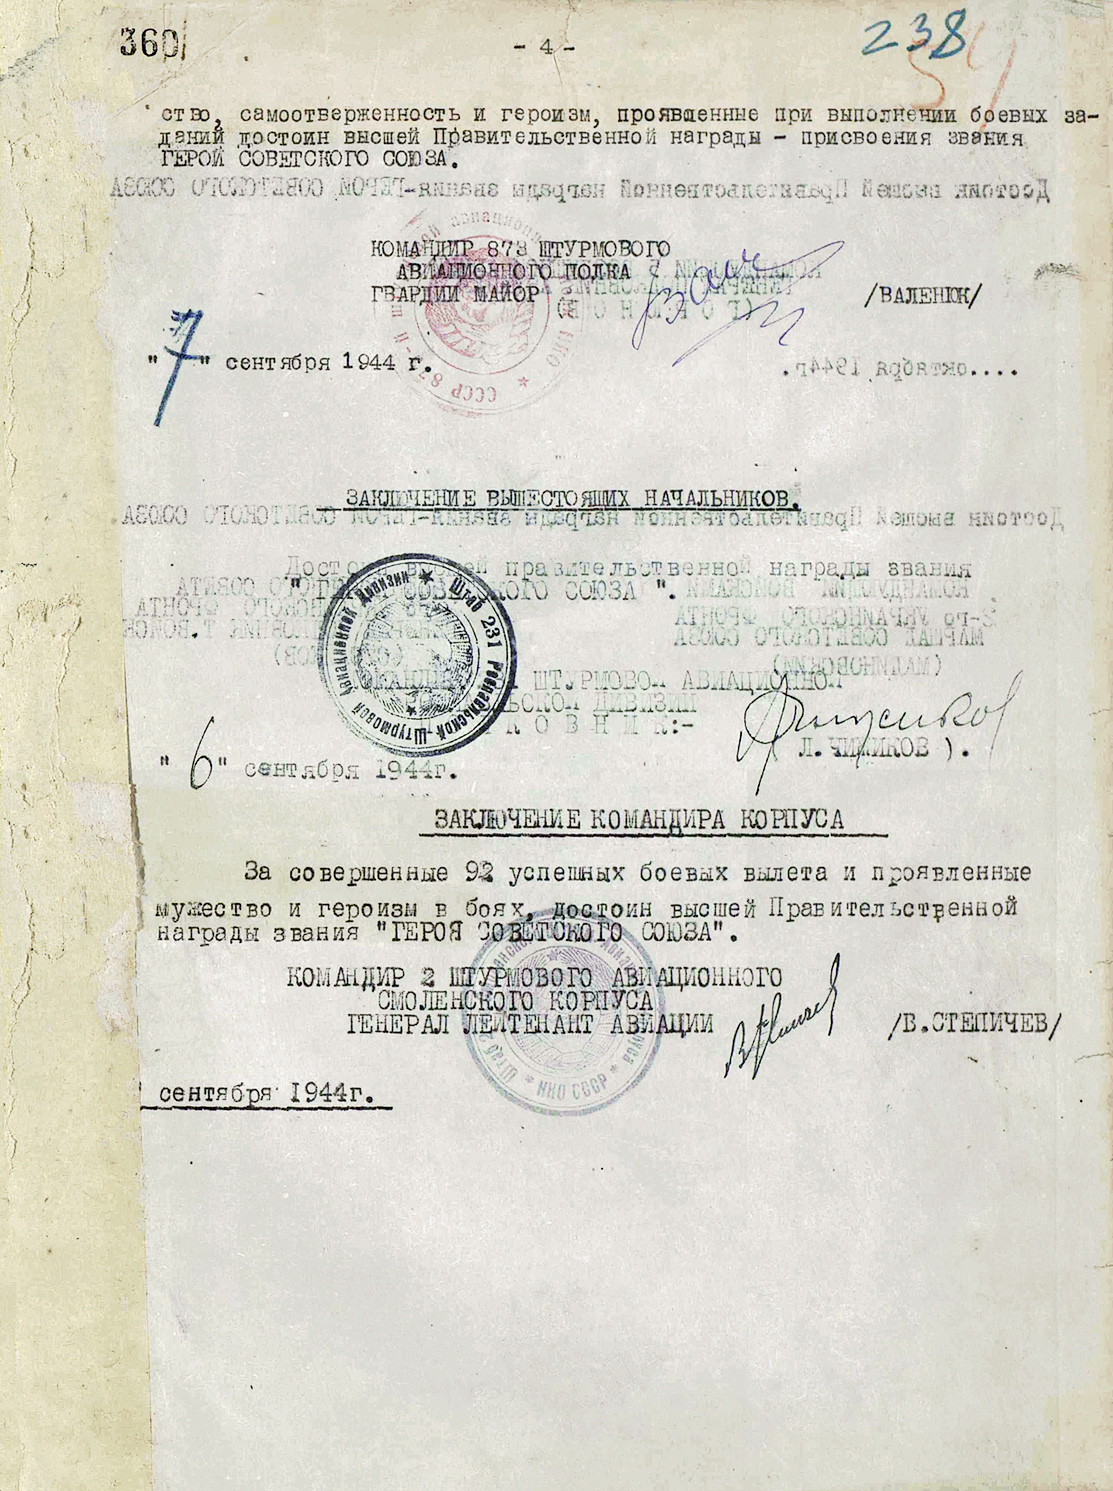 360
- 4 -
238
ство, самоотверженность и героизм, проявленные при выполнении боевых за-
даний достоин высшей Правительственной награды - присвоения звания
ГЕРОЙ СОВЕТСКОГО СОЮЗА.
КОМАНДИР 873 ШТУРМОВОГО
АВИАЦИОННОГО ПОЛКА
ГВАРДИИ МАЙОР /ВАЛЕНЮК/
"7" сентября 1944 г.
ЗАКЛЮЧЕНИЕ ВЫШЕСТОЯЩИХ НАЧАЛЬНИКОВ.
Достоин высшей правительственной награды звания
СОЮЗА ".
Штаб 231 Рославльской Штурмовой Авиационной Дивизии
ШТУРМОВОЙ АВИАЦИОННОЙ
ДИВИЗИИ
К О В Н И К:-
Л. ЧИЖИКОВ ).
"6" сентября 1944г.
ЗАКЛЮЧЕНИЕ КОМАНДИРА КОРПУСА
За совершенные 92 успешных боевых вылета и проявленные
мужество и героизм в боях, достоин высшей Правительственной
награды звания "ГЕРОЯ СОВЕТСКОГО СОЮЗА".
КОМАНДИР 2 ШТУРМОВОГО АВИАЦИОННОГО
СМОЛЕНСКОГО КОРПУСА
ГЕНЕРАЛ ЛЕЙТЕНАНТ АВИАЦИИ /В.СТЕПИЧЕВ/
НКО СССР
сентября 1944г.